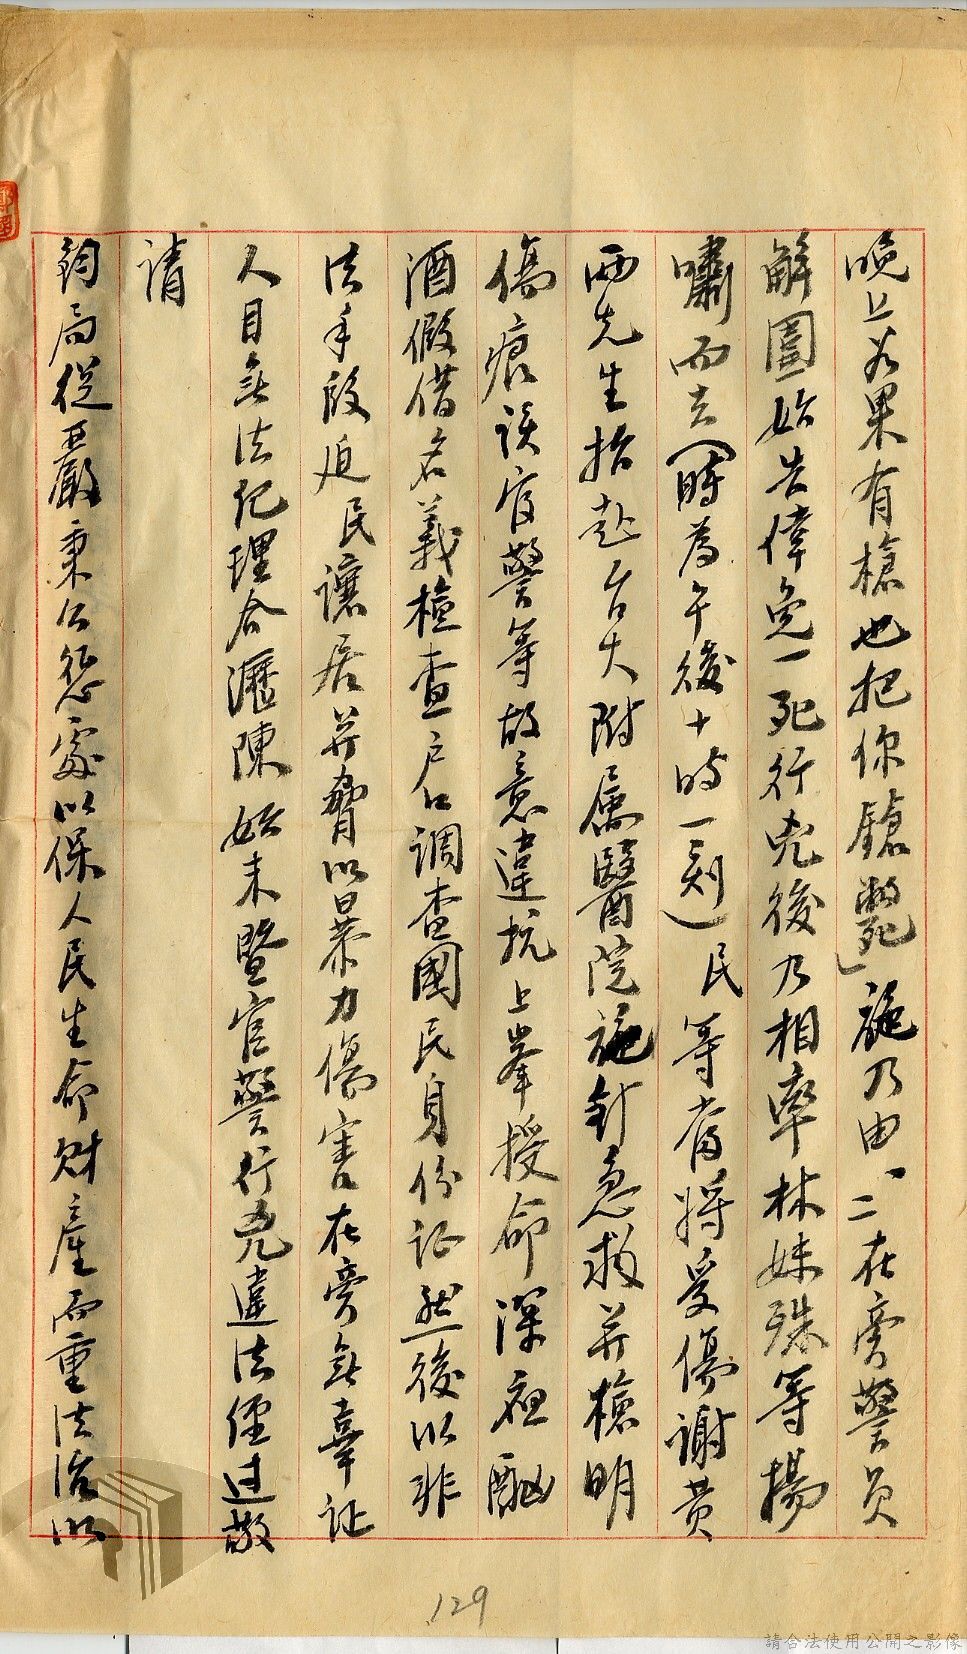 晚上若果有槍也把你鎗斃」施乃由一二在旁警員
解圍始告倖免一死行兇後乃相率林妹殊等揚
嘯而去(時為午後十時一刻)民等當將受傷謝黄
両先生抬赴台大附属醫院施針急救并檢明
傷痕該官警等故意違抗上峯授命深夜酗
酒假借名義檢查戶口調查國民身份证然後以非
法手段迫民讓居并脅以暴力傷害在旁無辜证
人目無法纪理合瀝陳始末暨官警行兇違法經过敬
请
鈞局從嚴秉公懲處以保人民生命財產而重法治以
129
請合法使用公開之影像